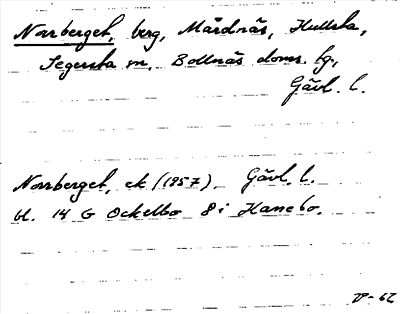 Norrberget, berg, Mårdnäs, Hullsta,
Segersta sn, Bollnäs doms. tg,
Gävl. l.
Norrberget, ek (1957) Gävl. l.
bl. 14 G Ockelbo 8 i Hanebo.